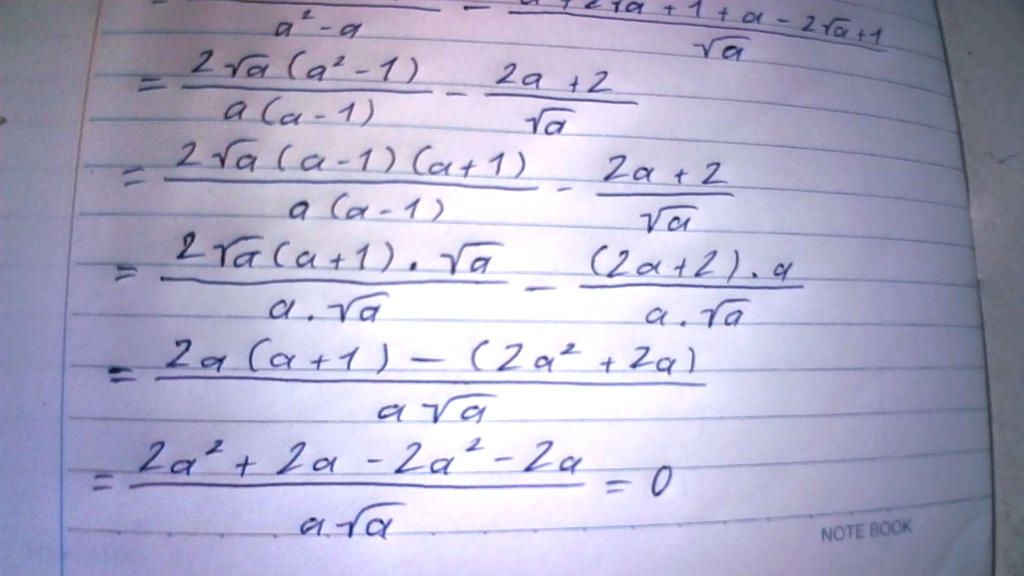 a² - a - a + 2√a + 1 + a - 2√a + 1 / √a
= 2√a (a² - 1) / a (a - 1) - 2a + 2 / √a
= 2√a (a - 1) (a + 1) / a (a - 1) - 2a + 2 / √a
= 2√a (a + 1) . √a / a . √a - (2a + 2) . a / a . √a
= 2a (a + 1) - (2a² + 2a) / a √a
= 2a² + 2a - 2a² - 2a / a √a = 0
NOTE BOOK